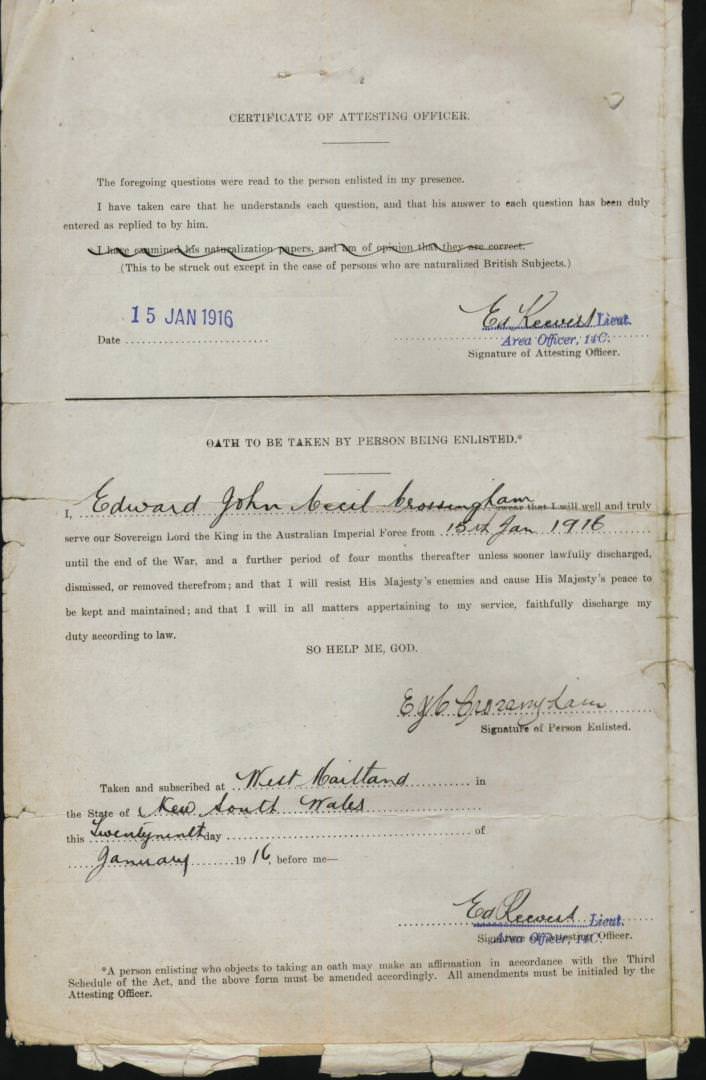 CERTIFICATE OF ATTESTING OFFICER.
The foregoing questions were read to the person enlisted in my presence.
I have taken care that he understands each question, and that his answer to each question has been duly
entered as replied to by him.
I have examined his naturalization papers, and am of opinion that they are correct.
(This to be struck out except in the case of persons who are naturalized British Subjects.)
15 JAN 1916
Date
Lieut.
Area Officer, 14C.
Signature of Attesting Officer.
OATH TO BE TAKEN BY PERSON BEING ENLISTED.*
I, Edward John Cecil Crossingham swear that I will well and truly
serve our Sovereign Lord the King in the Australian Imperial Force from 15th Jan 1916
until the end of the War, and a further period of four months thereafter unless sooner lawfully discharged,
dismissed, or removed therefrom; and that I will resist His Majesty's enemies and cause His Majesty's peace to
be kept and maintained; and that I will in all matters appertaining to my service, faithfully discharge my
duty according to law.
SO HELP ME, GOD.
E J C Crossingham
Signature of Person Enlisted.
Taken and subscribed at West Maitland in
the State of New South Wales
this Twentyninth day of
January 1916, before me—
Lieut.
Area Officer, 14C.
Signature of Attesting Officer.
*A person enlisting who objects to taking an oath may make an affirmation in accordance with the Third
Schedule of the Act, and the above form must be amended accordingly. All amendments must be initialed by the
Attesting Officer.